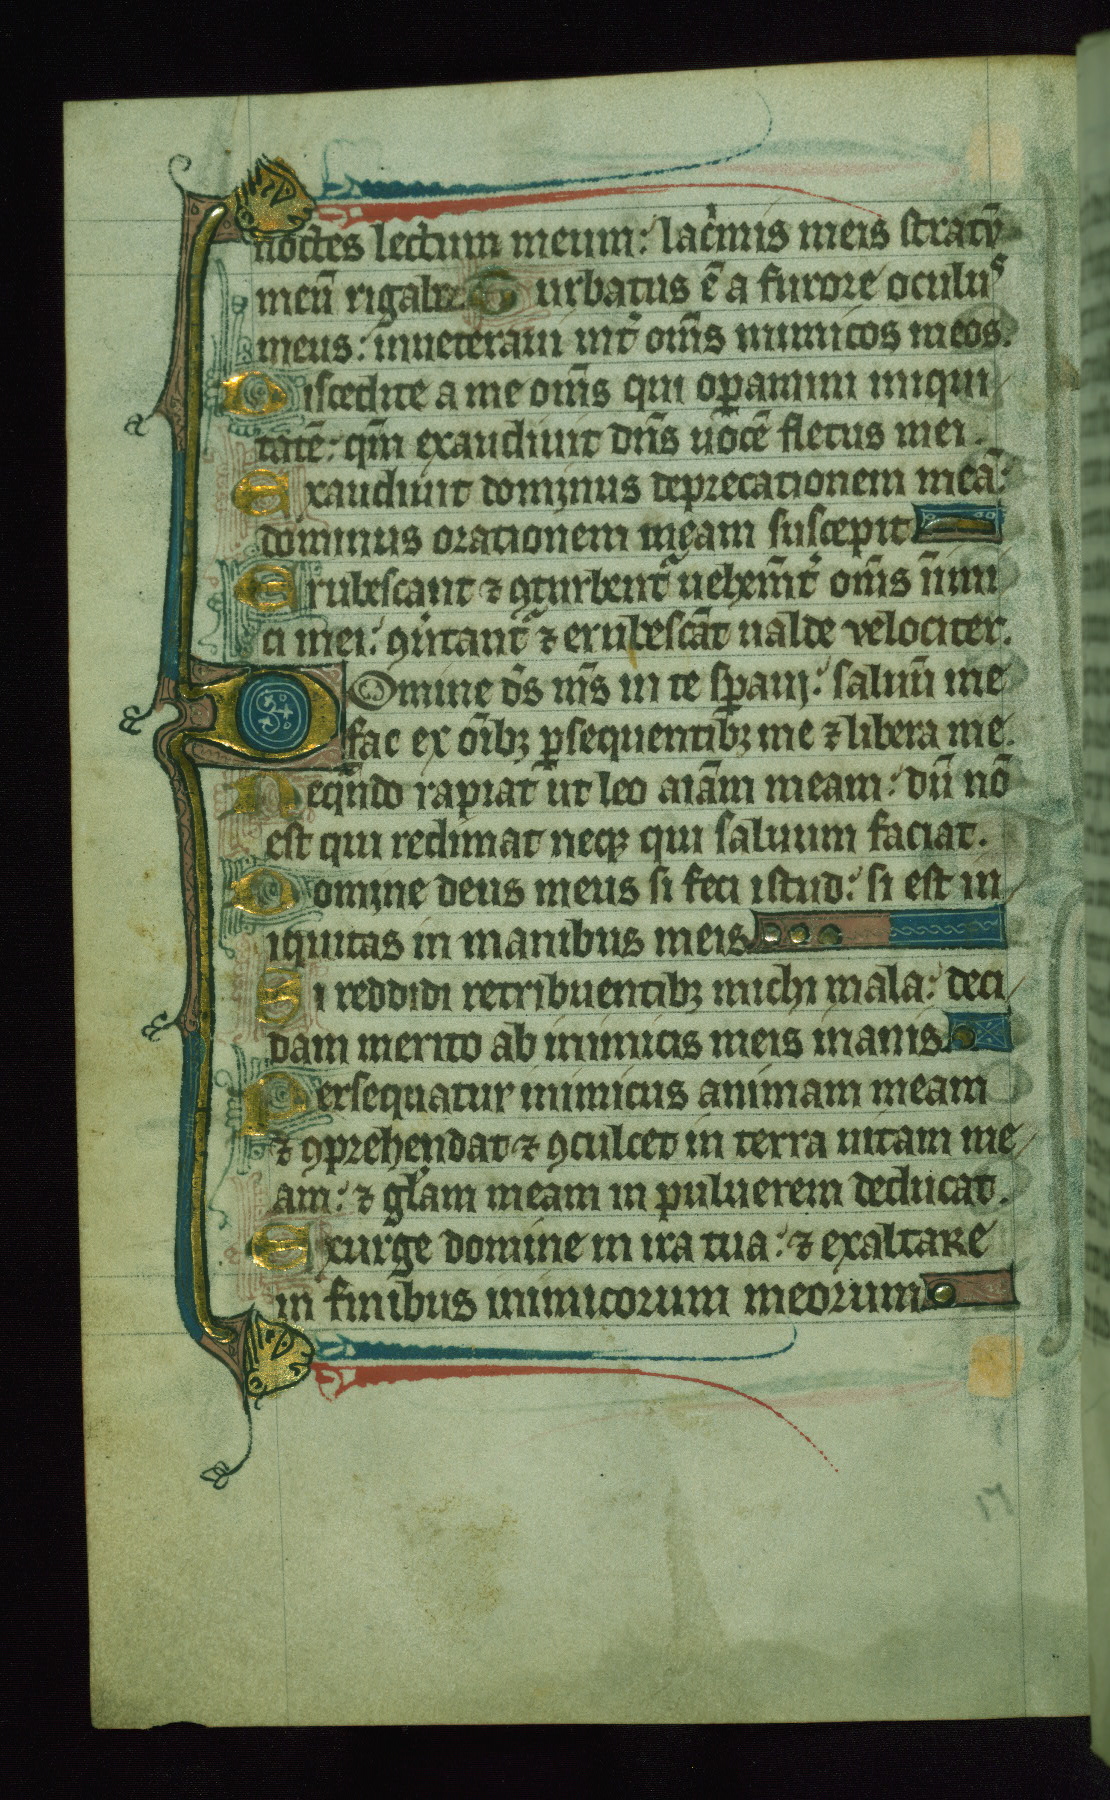 noctes lectum meum: lac̾mis meis stratū
meū rigabo. Turbatus ē a furore oculuˢ
meus: inueteraui int̾ om̄s inimicos meos.
Discedite a me om̄s qui oꝑamini iniqui
tatē: qm̄ exaudiuit dn̄s uocē fletus mei.
Exaudiuit dominus deprecationem meā:
dominus orationem meam suscepit
Erubescant ⁊ ꝯturbent᷑ uehem̄t̾ om̄s inimi
ci mei: ꝯu̾tant᷑ ⁊ erubescāt ualde velociter.
Domine ds̄ ms̄ in te sꝑaui: saluū me
fac ex oībꝫ ꝑsequentibꝫ me ⁊ libera me.
Neqn̄do rapiat ut leo aīam meam: dū nō
est qui redimat neqꝫ qui saluum faciat.
Domine deus meus si feci istud: si est in
iquitas in manibus meis
Si reddidi retribuentibꝫ michi mala: deci
dam merito ab inimicis meis inanis
Persequatur inimicus animam meam
⁊ ꝯprehendat ⁊ ꝯculcet in terra uitam me
am: ⁊ gl̄am meam in puluerem deducat.
Exurge domine in ira tua: ⁊ exaltare
in finibus inimicorum meorum
17